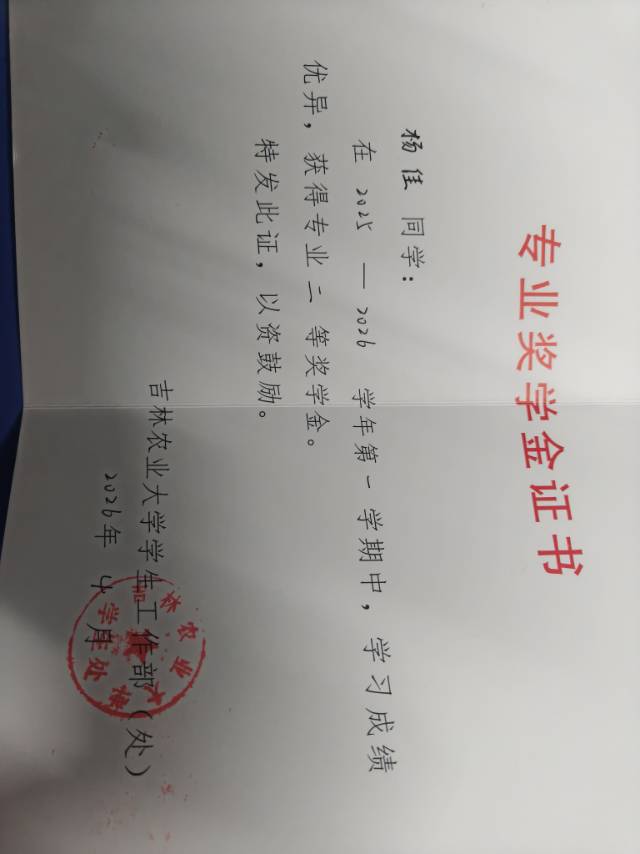 专业奖学金证书
杨佳 同学：
在 2025 — 2026 学年第一学期中，学习成绩
优异，获得专业二等奖学金。
特发此证，以资鼓励。
吉林农业大学学生工作部（处）
2026年 4月